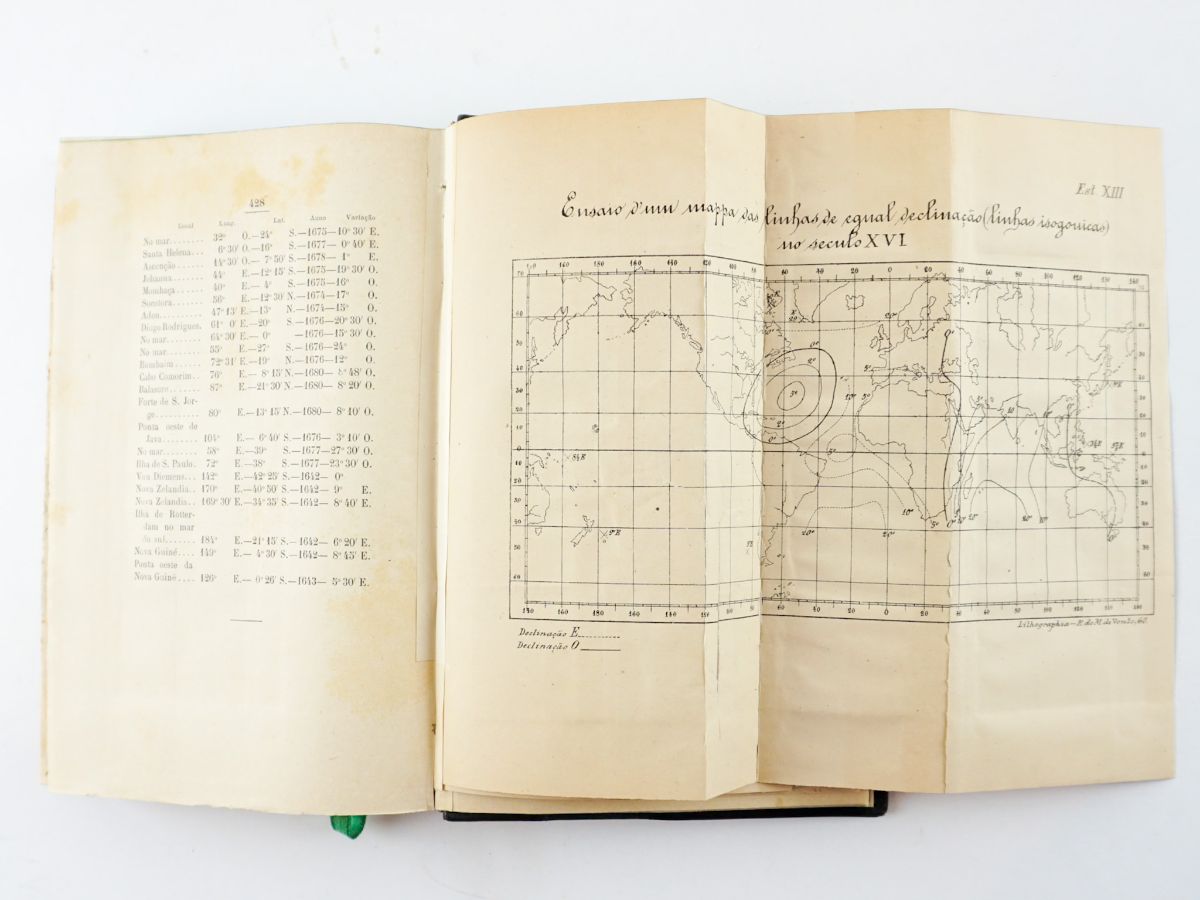 428
Local Long. Lat. Anno Variação
No mar........ 32º O.—24º S.—1675—10º 30' E.
Santa Helena... 6º 30' O.—16º S.—1677— 0º 40' E.
Ascenção...... 14º 30' O.— 7º 50' S.—1678— 1º E.
Johanna....... 44º E.—12º 15' S.—1675—19º 30' O.
Mombaça...... 40º E.— 4º S.—1675—16º O.
Socotora....... 56º E.—12º 30' N.—1674—17º O.
Aden......... 47º 13' E.—13º N.—1674—15º O.
Diogo Rodrigues. 61º 0' E.—20º S.—1676—20º 30' O.
No mar........ 64º 30' E.— 0º —1676—15º 30' O.
No mar........ 55º E.—27º S.—1676—24º O.
Bombaim...... 72º 31' E.—19º N.—1676—12º O.
Cabo Comorim.. 76º E.— 8º 15' N.—1680— 8º 48' O.
Balasore....... 87º E.—21º 30' N.—1680— 8º 20' O.
Forte de S. Jor-
ge.......... 80º E.—13º 15' N.—1680— 8º 10' O.
Ponta oeste de
Java........ 104º E.— 6º 40' S.—1676— 3º 10' O.
No mar........ 58º E.—39º S.—1677—27º 30' O.
Ilha de S. Paulo. 72º E.—38º S.—1677—23º 30' O.
Van Diemens... 142º E.—42º 25' S.—1642— 0º
Nova Zelandia.. 170º E.—40º 50' S.—1642— 9º E.
Nova Zelandia.. 169º 30' E.—34º 35' S.—1642— 8º 40' E.
Ilha de Rotter-
dam no mar
do sul....... 184º E.—21º 15' S.—1642— 6º 20' E.
Nova Guiné.... 149º E.— 4º 30' S.—1642— 8º 45' E.
Ponta oeste da
Nova Guiné.... 126º E.— 0º 26' S.—1643— 5º 30' E.
Est XIII
Ensaio d'um mappa das linhas de egual declinação (linhas isogonicas)
no seculo XVI
Declinação E
Declinação O
Lithographia